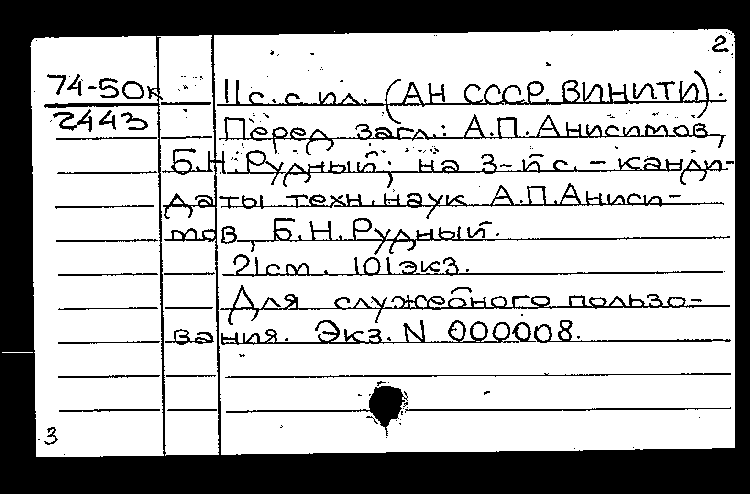 2
74-50к
2443
11 с. с ил. (АН СССР. ВИНИТИ).
Перед загл.: А.П. Анисимов,
Б.Н. Рудный; на 3-й с. - канди-
даты техн. наук А.П. Аниси-
мов, Б.Н. Рудный.
21 см. 101 экз.
Для служебного пользо-
вания. Экз. N 000008.
3